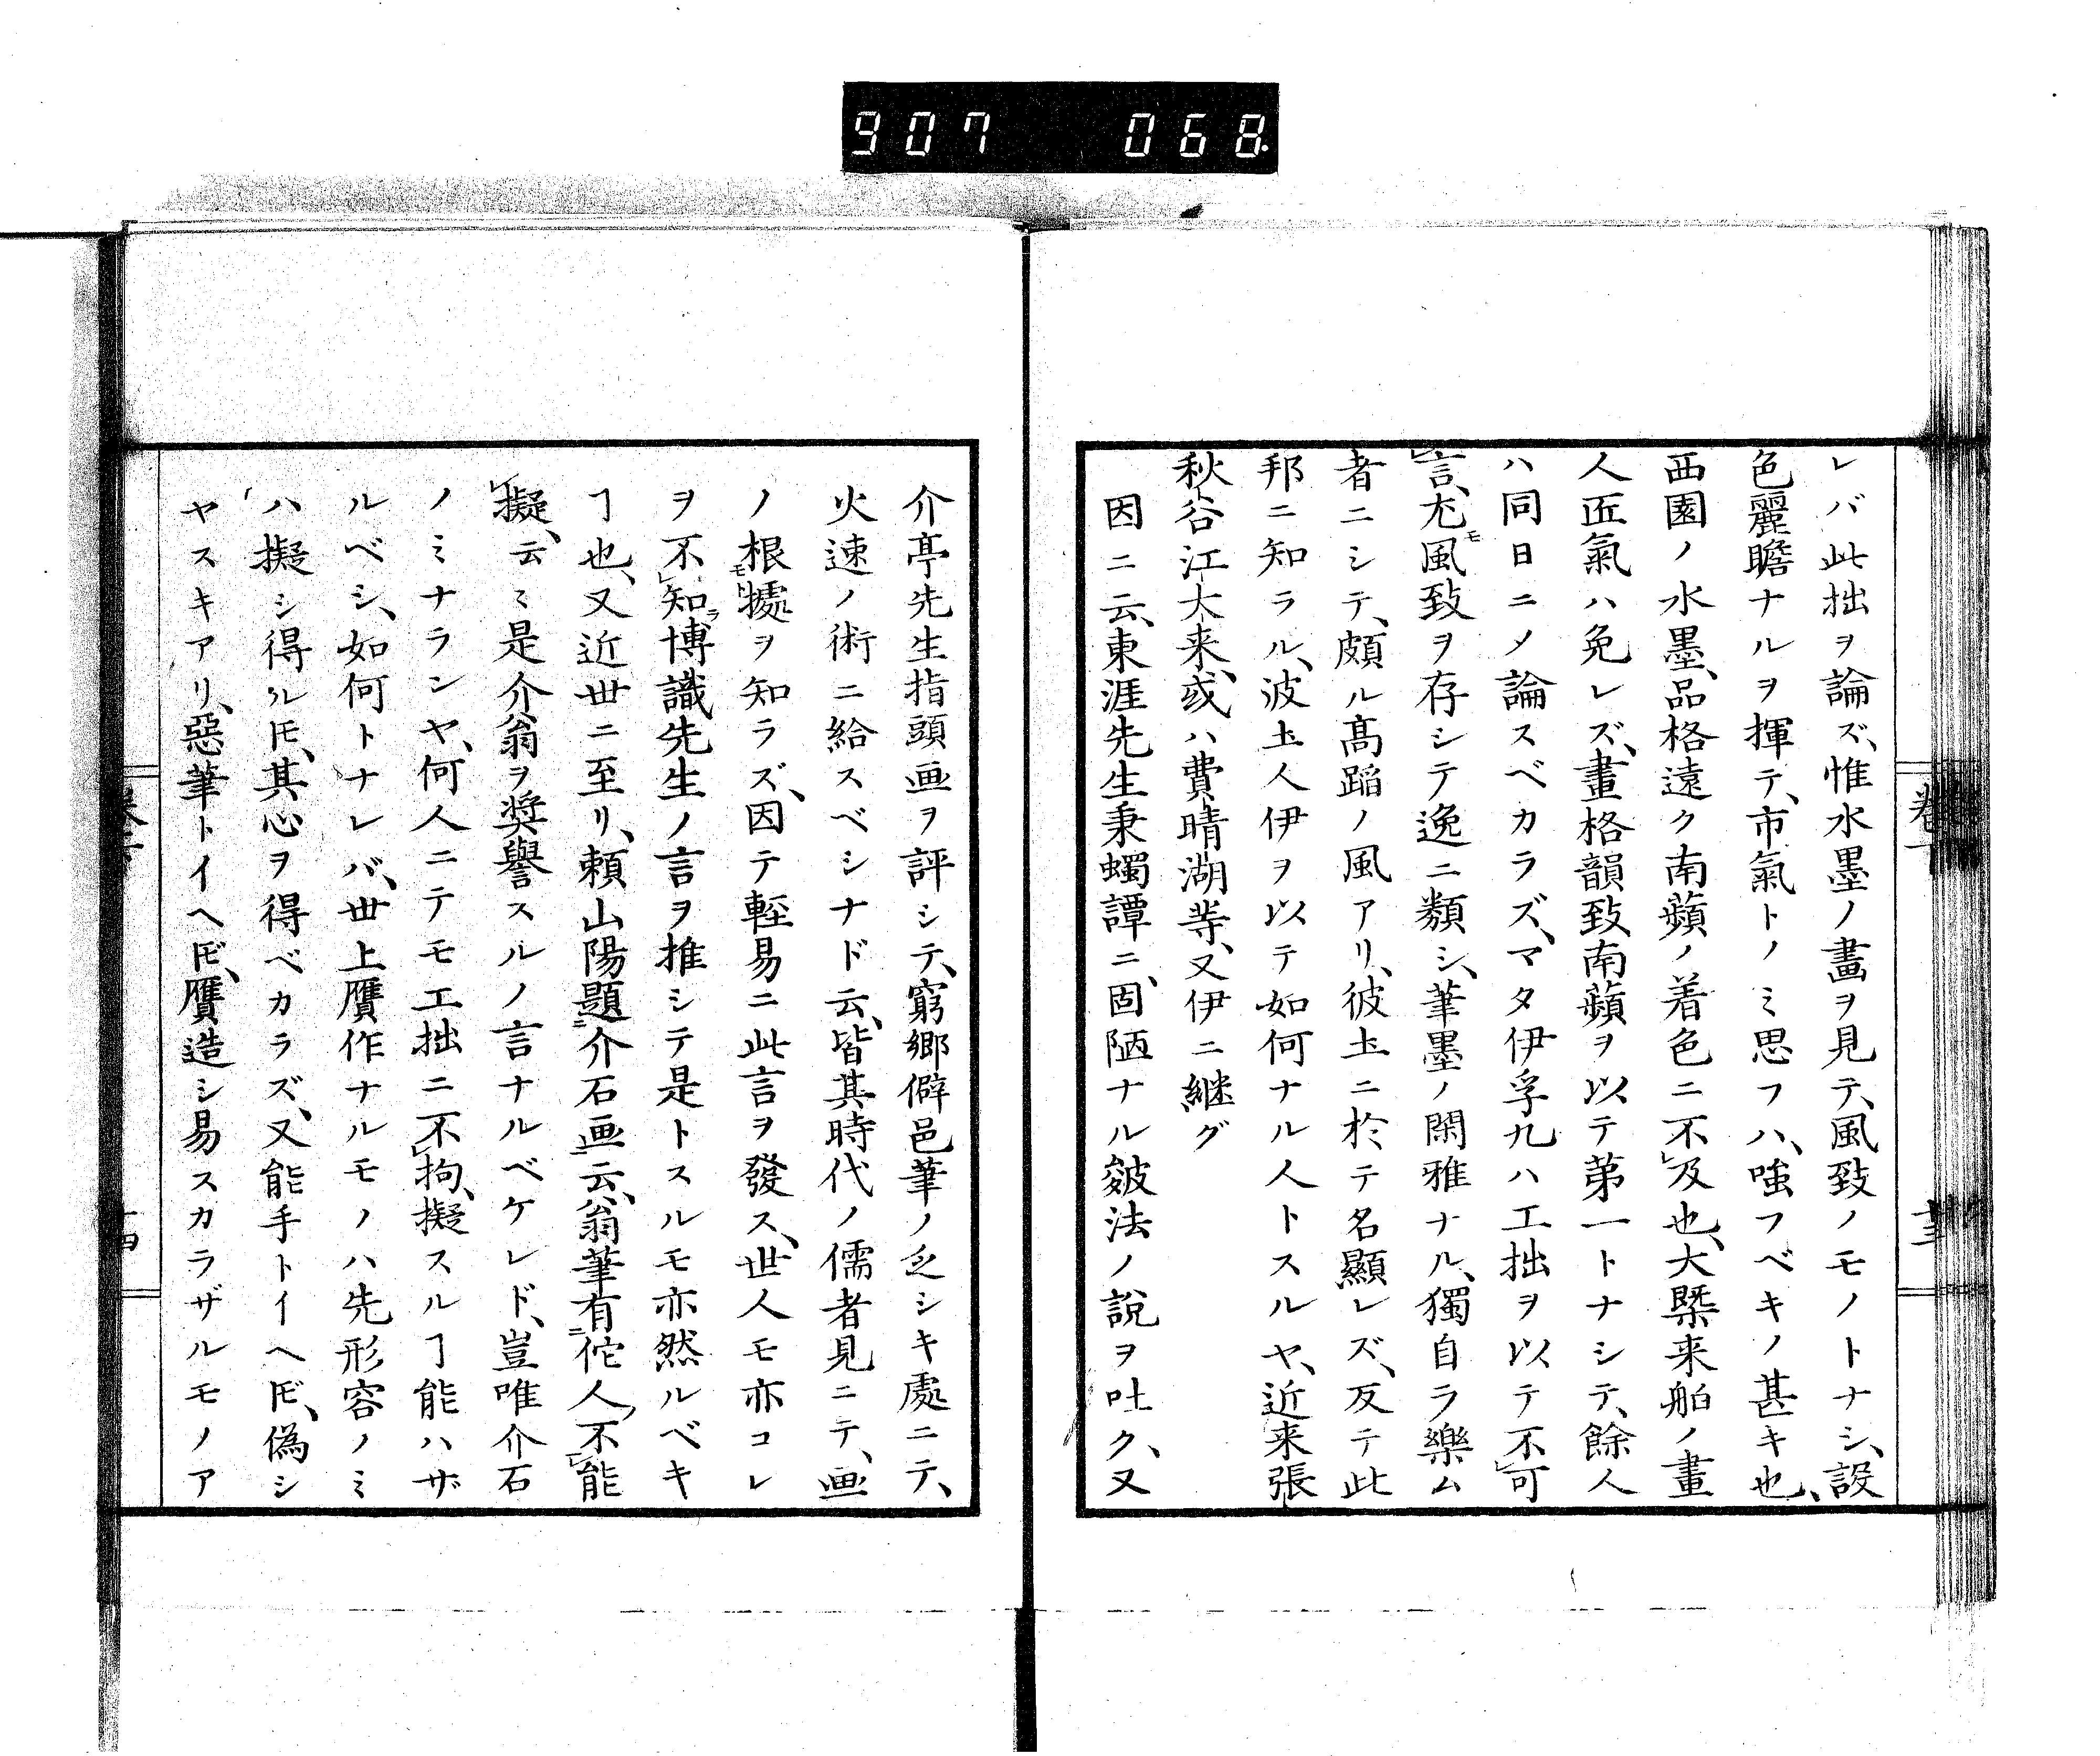 907 068
レバ此拙ヲ論ズ、惟水墨ノ畫ヲ見テ、風致ノモノトナシ、設
色麗贍ナルヲ揮テ、市氣トノミ思フハ、嗤フベキノ甚キ也、
西園ノ水墨、品格遠ク南蘋ノ着色ニ不㆑及也、大槩来舶ノ畫
人匠氣ハ免レズ、畫格韻致南蘋ヲ以テ第一トナシテ、餘人
ハ同日ニメ論スベカラズ、マタ伊孚九ハ工拙ヲ以テ不㆑可
㆑言、尤モ風致ヲ存シテ逸ニ類シ、筆墨ノ閑雅ナル、獨自ラ樂ム
者ニシテ、頗ル髙蹈ノ風アリ、彼土ニ於テ名顯レズ、反テ此
邦ニ知ラル、波土人伊ヲ以テ如何ナル人トスルヤ、近来張
秋谷江大来、或ハ費晴湖等、又伊ニ継グ
因ニ云、東涯先生秉蠋譚ニ、固陋ナル皴法ノ說ヲ吐ク、又
介亭先生指頭画ヲ評シテ、窮郷僻邑筆ノ乏シキ處ニテ、
火速ノ術ニ給スベシナド云、皆其時代ノ儒者見ニテ、画
ノ根㯫モトヲ知ラズ、因テ輊易ニ此言ヲ發ス、世人モ亦コレ
ヲ不㆑知ラ、博識先生ノ言ヲ推シテ是トスルモ亦然ルベキ
ヿ也、又近世ニ至リ、頼山陽題㆓介石画㆒云、翁筆有㆘佗人不㆑能
㆑擬、云〻是介翁ヲ奨譽スルノ言ナルベケレド、豈唯介石
ノミナランヤ、何人ニテモ工拙ニ不㆑拘、擬スルヿ能ハザ
ルベシ、如何トナレバ、世上贋作ナルモノハ先形容ノミ
ハ擬シ得ル𪜈、其心ヲ得ベカラズ、又能手トイヘ𪜈、偽シ
ヤスキアリ、惡筆トイヘ𪜈、贋造シ易スカラザルモノア